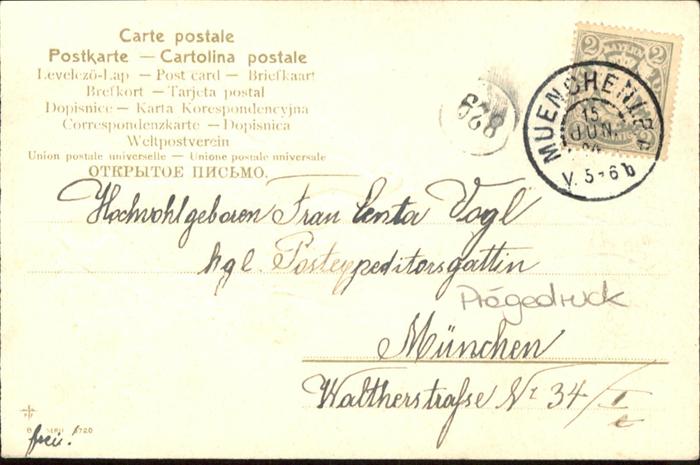 Carte postale
Postkarte — Cartolina postale
Levelező-Lap — Post card — Briefkaart
Brefkort — Tarjeta postal
Dopisnice — Karta Korespondencyjna
Correspondenzkarte — Dopisnica
Weltpostverein
Union postale universelle — Unione postale universale
ОТКРЫТОЕ ПИСЬМО.
829
2 BAYERN 2
MUENCHEN
15
JUN.
V. 5-6 b
Hochwohlgeboren Frau Centa Vogl
kgl. Postexpeditorsgattin
Prägedruck
München
Waltherstraße Nr 34/I
SERIE 1720
frei!